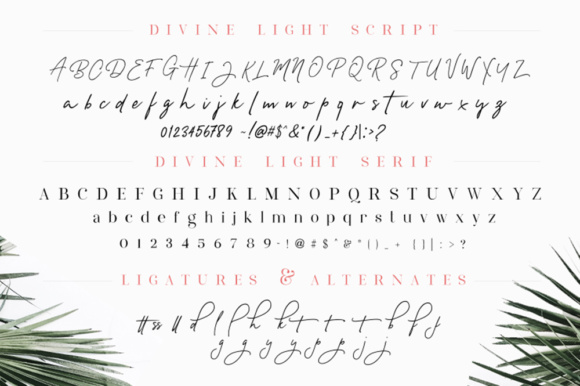 DIVINE LIGHT SCRIPT
ABCDEFGHIJKLMNOPQRSTUVWXYZ
abcdefghijklmnopqrstuvwxyz
0123456789 ~!@#$^&*()_+{}|:>?
DIVINE LIGHT SERIF
ABCDEFGHIJKLMNOPQRSTUVWXYZ
abcdefghijklmnopqrstuvwxyz
0123456789~!@#$^&*()_+{}|:>?
LIGATURES & ALTERNATES
tt ss ll d l l h k t t t b f f
g g y y p p j j